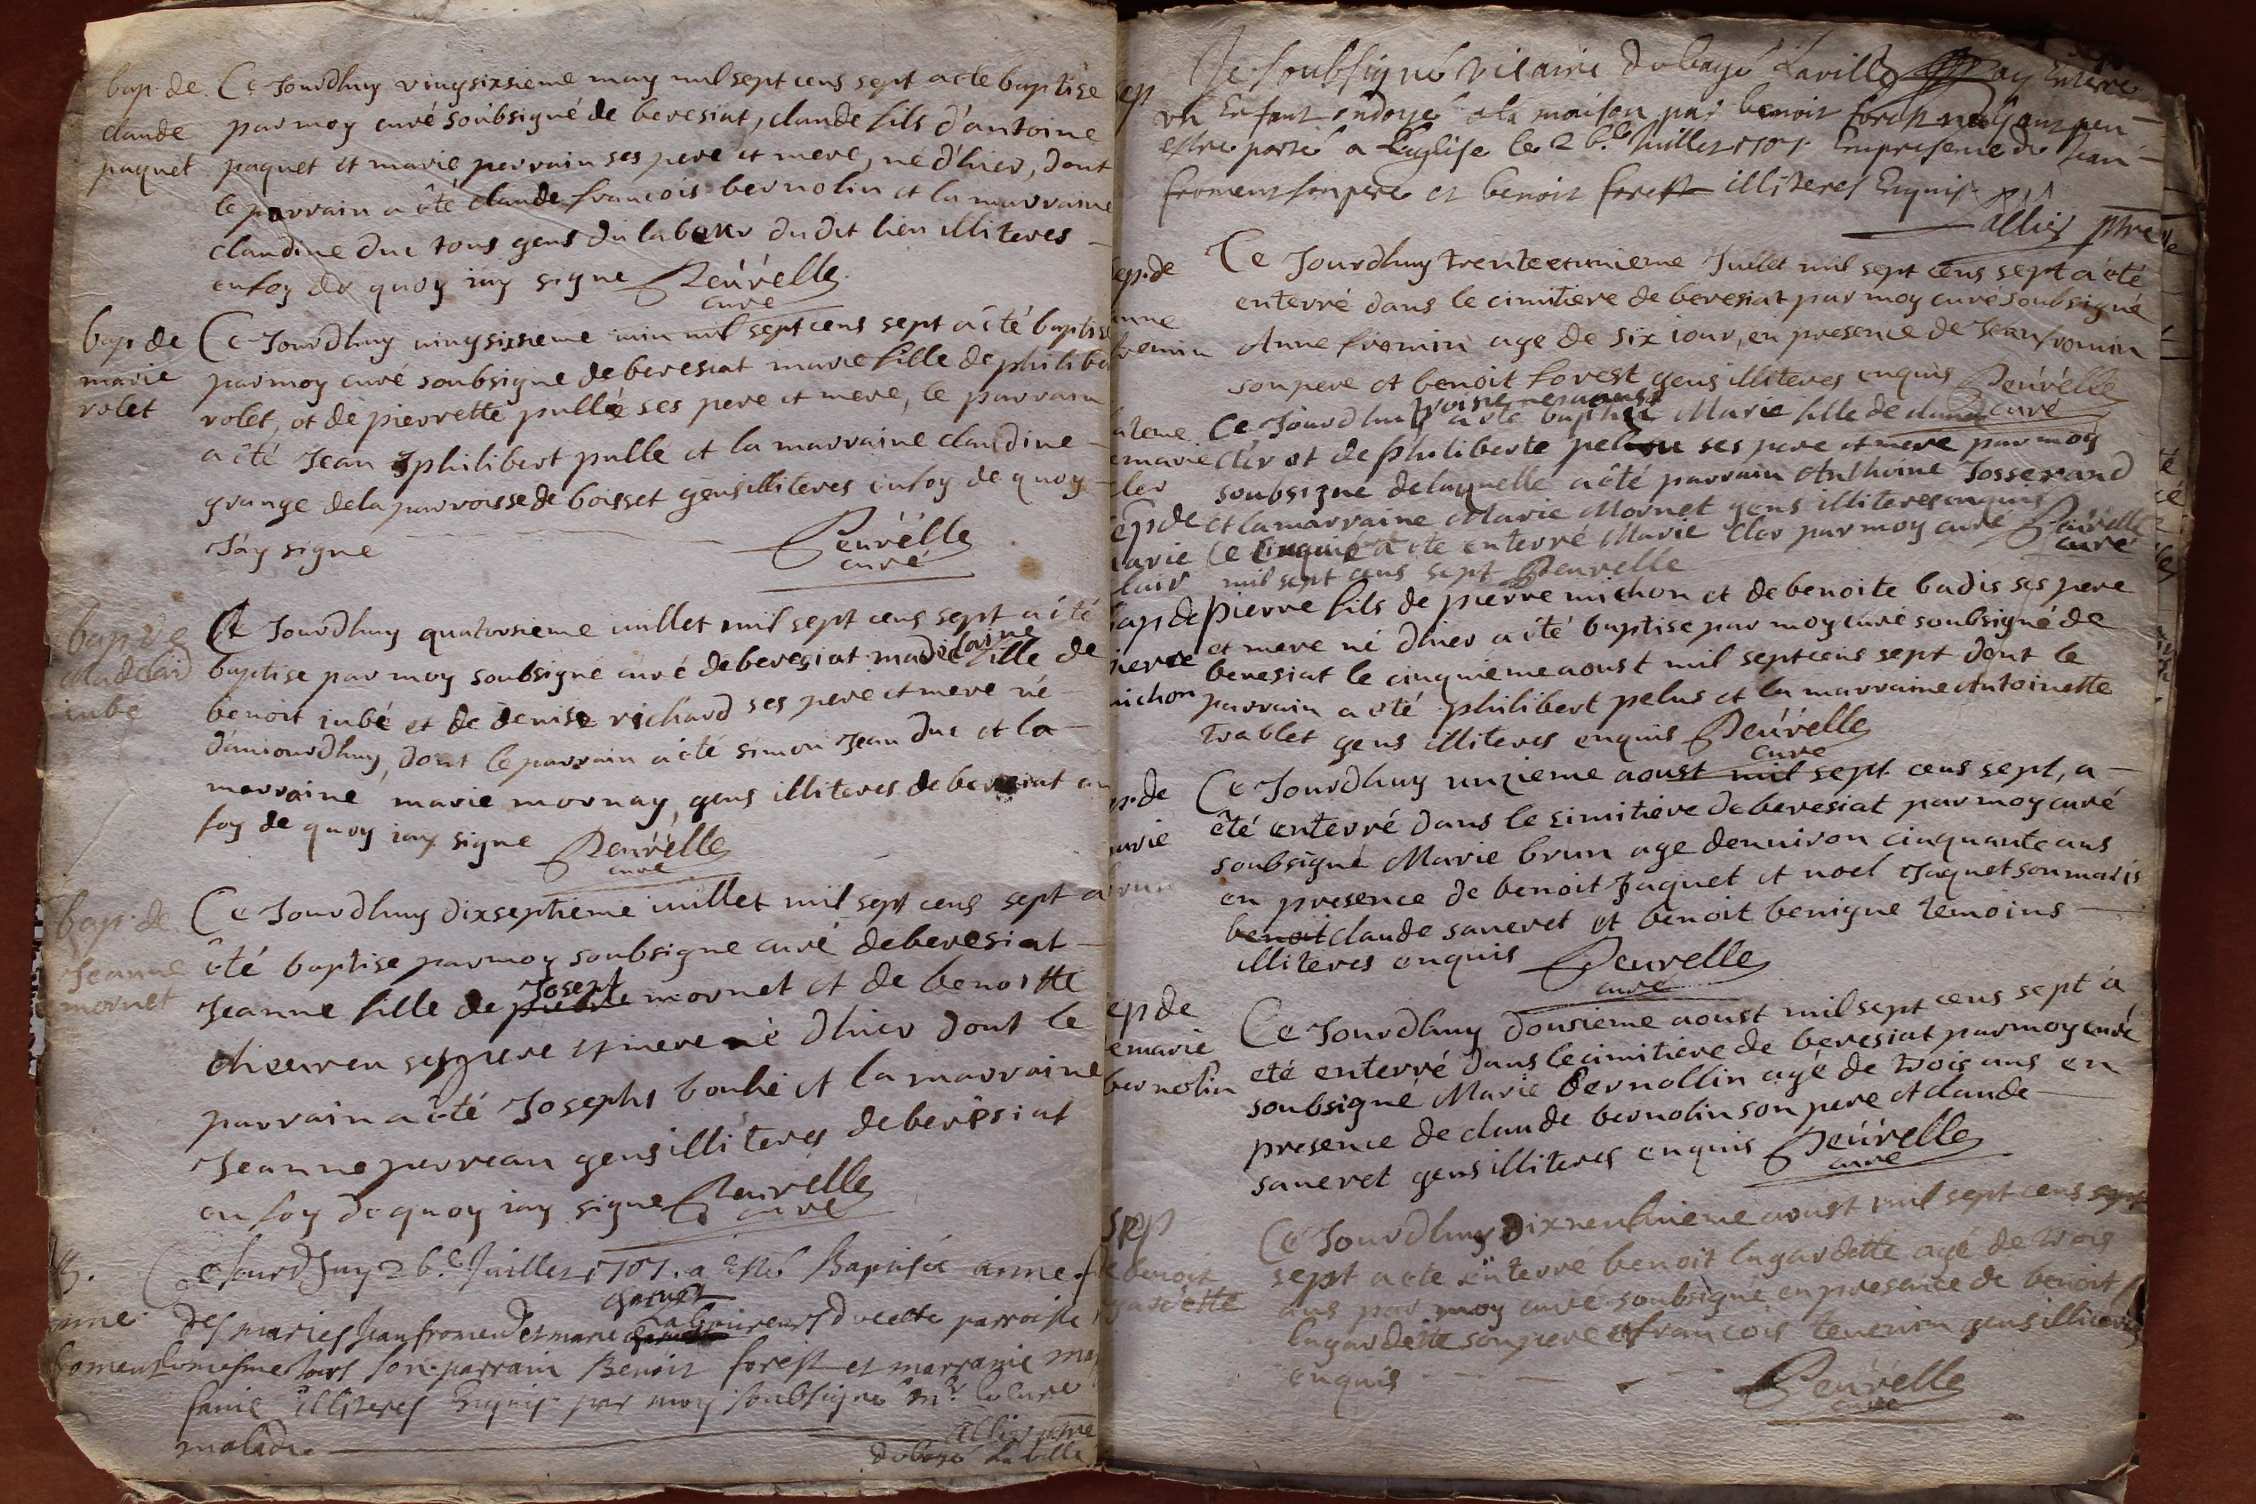 bap. de
claude
paquet
Ce Jourdhuy vingsixsieme may mil sept cens sept a ete baptise
par moy curé soubsigné de beresiat, claude fils d'antoine
paquet et marie perrain ses pere et mere, né d'hier, dont
le parrain a été claude francois bernolin et la marraine
claudine duc tous gens du labeur du dit lieu illiteres
en foy de quoy iay signe Reuvelle
curé
bap. de
marie
rolet
Ce Jourdhuy vingsixsieme iuin mil sept cens sept a été baptise
par moy curé soubsigne de beresiat marie fille de philibe
rolet, et de pierrette pullie ses pere et mere, le parrain
a été Jean philibert pulle et la marraine claudine
grange de la parroisse de boisset gens illiteres en foy de quoy
J'ay signe
Reuvelle
curé
bap. de
madelaine
iube
Ce Jourdhuy quatorsieme iuillet mil sept cens sept a été
baptise par moy soubsigné curé de beresiat madelaine fille de
benoit iubé et de denise richard ses pere et mere né
d'auiourdhuy, dont le parrain a été simon Jean duc et la
marraine marie mornay, gens illiteres de beresiat en
foy de quoy iay signe Reuvelle
curé
bap. de
Jeanne
mornet
Ce Jourdhuy dixseptieme iuillet mil sept cens sept a
été baptise par moy soubsigne curé de beresiat
Josept
Jeanne fille de pierre mornet et de benoitte
chevreu ses pere et mere né dhier dont le
parrain a été Joseph bouhé et la marraine
Jeanne perreau gens illiteres de beresiat
en foy de quoy iay signe Reuvelle
curé
Ce Jourdhuy 26.e Juillet 1707. a esté Baptisée anne
des mariés Jean froment et marie laboureurs de cette parroisse
froment le mesme iour son parrain Benoit forest et marraine
illiteres Enquis par moy soubsigné mr le curé
malade
allier ptre
du bagé la ville
sep
Je soubsigné vicaire du bagé Laville ay Enterré
un Enfant ondoyé a la maison par benoit forest nayant peu
estre porté a l'Eglise le 26.e Juillet 1707. En presence de Jean
froment son pere et benoit forest illiteres Enquis
allier ptre
sep. de
anne
fromin
Ce Jourdhuy trente et unieme Juillet mil sept cens sept a été
enterré dans le cimitiere de beresiat par moy curé soubsigné
Anne fromin age de six iour, en presence de Jean fromin
son pere et benoit forest gens illiteres enquis Reuvelle
curé
bateme
de marie
cler
Ce Jourdhuy troisieme aoust a ete baptise Marie fille de claude
cler et de philiberte pelou ses pere et mere par moy
soubsigne de laquelle a été parrain Anthoine Josserand
et la marraine Marie Mornet gens illiteres enquis Reuvelle
curé
sep de
marie
clair
Ce cinquie a ete enterré Marie cler par moy curé
mil sept cens sept Reuvelle
bap de
pierre
michon
pierre fils de pierre michon et de benoite badis ses pere
et mere né dhier a été baptise par moy curé soubsigné de
beresiat le cinquieme aoust mil sept cens sept dont le
parrain a été philibert pelus et la marraine Antoinette
trablet gens illiteres enquis Reuvelle
curé
sep. de
marie
brun
Ce Jourdhuy unzieme aoust mil sept cens sept, a
été enterré dans le simitiere de beresiat par moy curé
soubsigné Marie brun age denuiron cinquante ans
en presence de benoit Jaquet et noel Jaquet son maris
benoit claude saneret et benoit benigne temoins
illiteres enquis Reuvelle
curé
sep de
marie
bernolin
Ce Jourdhuy dousieme aoust mil sept cens sept a
eté enterré dans le cimitiere de beresiat par moy curé
soubsigné Marie Bernollin agé de trois ans en
presence de claude bernolin son pere et claude
saneret gens illiteres enquis Reuvelle
curé
sep
de benoit
lagardette
Ce Jourdhuy Dixneufuieme aoust mil sept cens sept
sept a ete enterré benoit lagardette agé de trois
ans par moy curé soubsigné en presance de benoit
lagardette son pere et francois tenevin gens illiteres
enquis
Reuvelle
curé